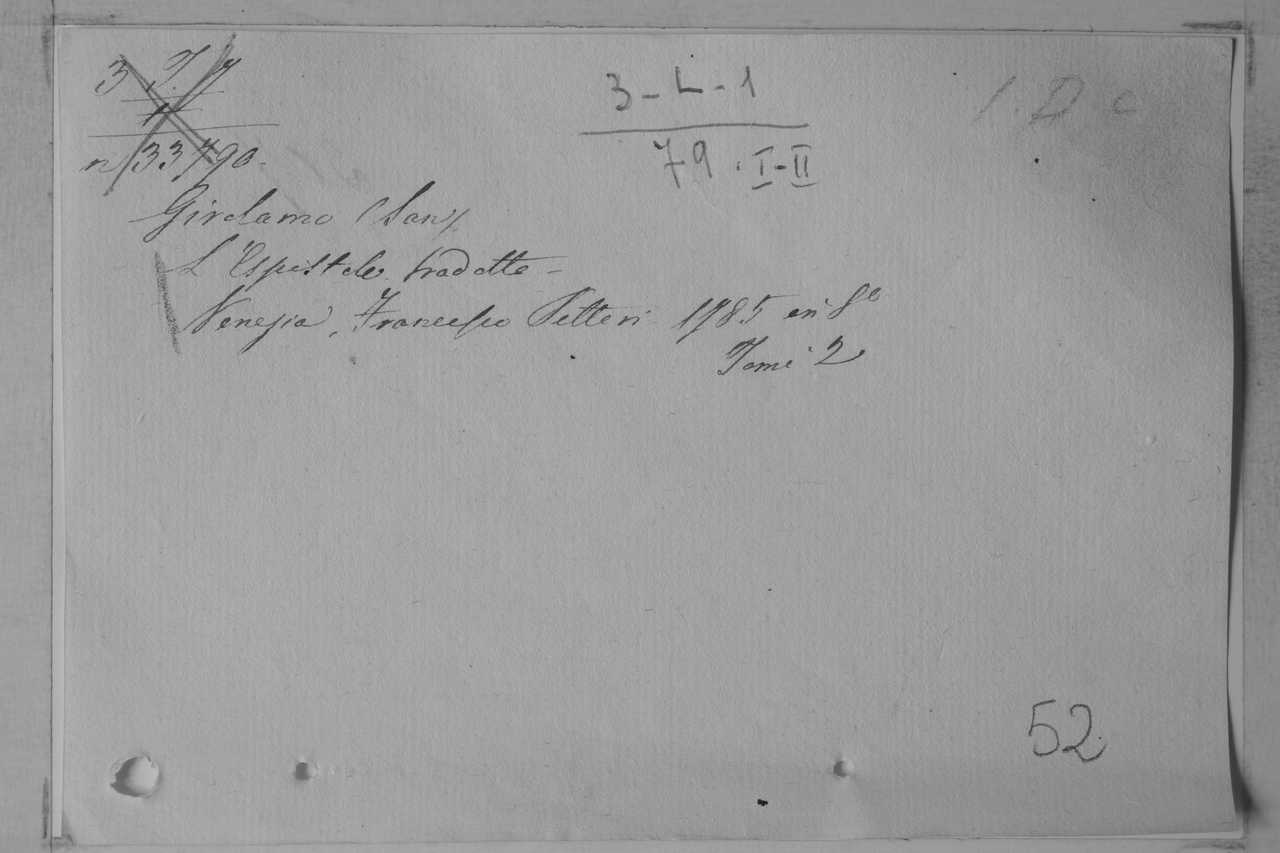 3-L-1
79.I-II
Girolamo (San)
L'Epistole tradotte -
Venezia, Francesco Pitteri 1785 in 8°
Tomi 2
52